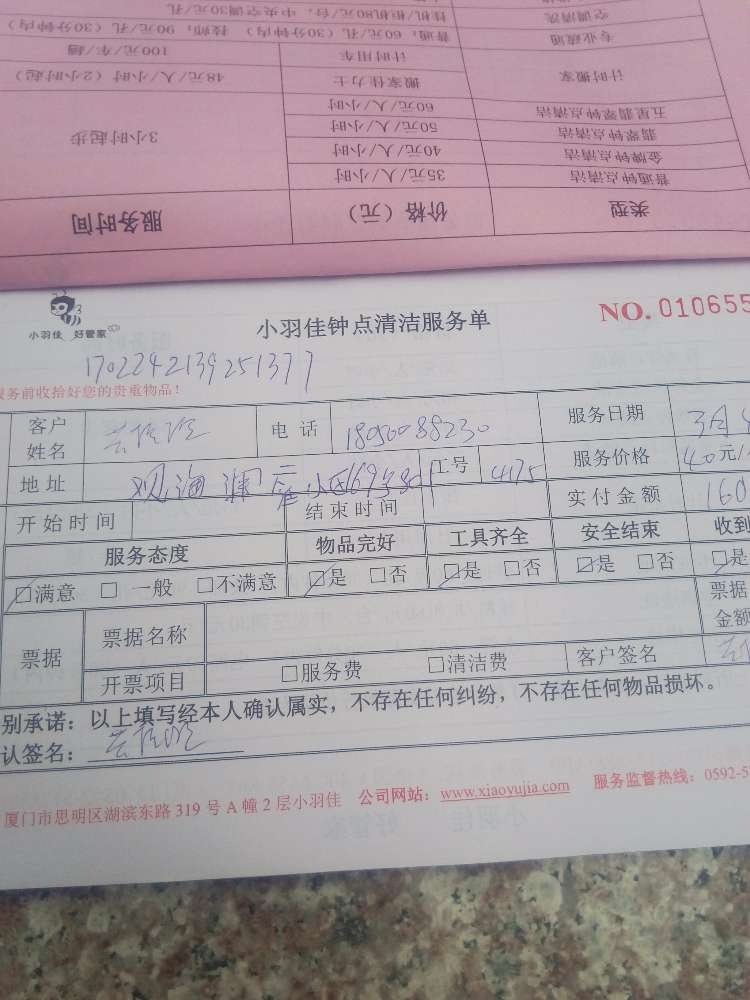 空调清洗 挂机柜机80元/台，中央空调30元/孔
专业疏通 普通：60元/孔（30分钟内） 技师：90元/孔（30分钟内）
计时搬家 计时用车 100元/车/趟
搬家佳力士 48元/人/小时（2小时起）
五星翡翠钟点清洁 60元/人/小时
翡翠钟点清洁 50元/人/小时 3小时起步
金牌钟点清洁 40元/人/小时
普通钟点清洁 35元/人/小时
类型 价格（元） 服务时间
小羽佳 好管家
小羽佳钟点清洁服务单
NO. 010655
1702242139251377
服务前收拾好您的贵重物品！
客户姓名 电话 18050088230 服务日期 3月
地址 观海澜庭小区169号 工号 4175 服务价格 40元/
开始时间 结束时间 实付金额 160
服务态度 物品完好 工具齐全 安全结束 收到
☑满意 □一般 □不满意 ☑是 □否 ☑是 □否 ☑是 □否 ☑是
票据 票据名称 票据金额
开票项目 □服务费 □清洁费 客户签名
别承诺：以上填写经本人确认属实，不存在任何纠纷，不存在任何物品损坏。
认签名：
厦门市思明区湖滨东路319号A幢2层小羽佳 公司网站：www.xiaoyujia.com 服务监督热线：0592-5